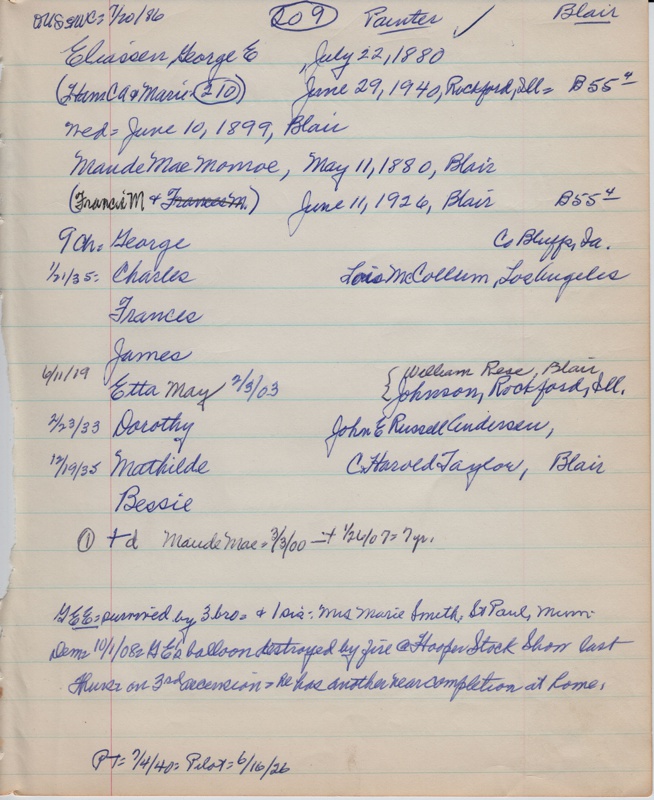 7/20/86 209 Painter ✓ Blair
Eliassen, George E , July 22, 1880
(Ham CA & Marie 210) June 29, 1940, Rockford, Ill = B55 4
wed = June 10, 1899, Blair
Maude Mae Monroe, May 11, 1880, Blair
(Francis M & Frances M.) June 11, 1926, Blair B55 4
9 Ch: George Co Bluffs, Ia.
1/21/35 = Charles Lois McCollum, Los Angeles
Frances
James
6/11/19 Etta May 2/3/03 { William Rese, Blair
Johnson, Rockford, Ill.
2/23/33 Dorothy John E Russell Andersen,
12/19/35 Mathilde C. Harold Taylor, Blair
Bessie
① + d Maude Mae = 3/3/00 — + 1/26/07 = 7 yr.
GEE = survived by 3 bro = + 1 sis: Mrs Marie Smith, St Paul, Minn.
Dem = 10/1/08 = GE's balloon destroyed by fire @ Hooper Stock Show last
Thurs = on 3rd ascension = he has another near completion at home.
PT = 7/4/40 = Pilot = 6/16/26